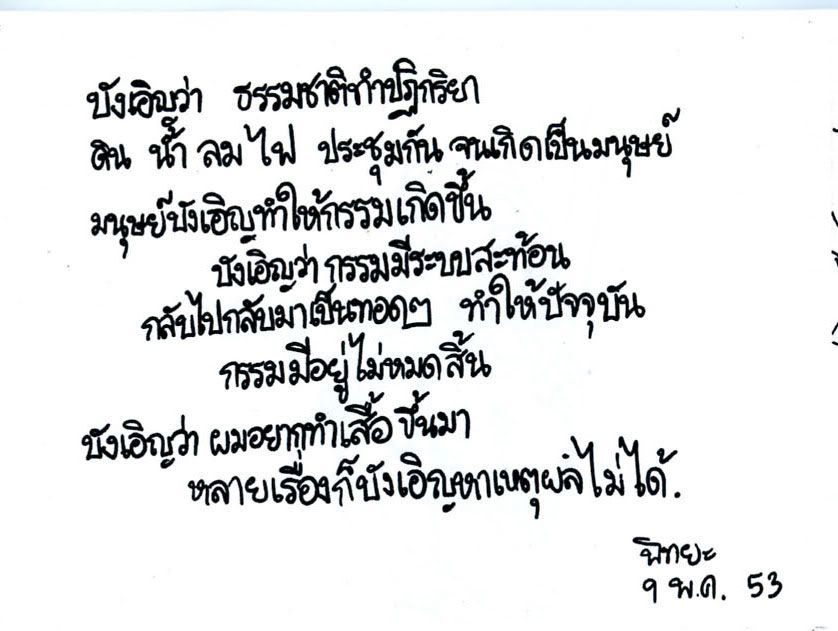 บังเอิญว่า ธรรมชาติทำปฏิกริยา
ดิน น้ำ ลม ไฟ ประชุมกัน จนเกิดเป็นมนุษย์
มนุษย์บังเอิญทำให้กรรมเกิดขึ้น
บังเอิญว่า กรรมมีระบบสะท้อน
กลับไปกลับมาเป็นทอดๆ ทำให้ปัจจุบัน
กรรมมีอยู่ไม่หมดสิ้น
บังเอิญว่า ผมอยากทำเสื้อขึ้นมา
หลายเรื่องก็บังเอิญหาเหตุผลไม่ได้.
พิทยะ
๑ พ.ค. 53